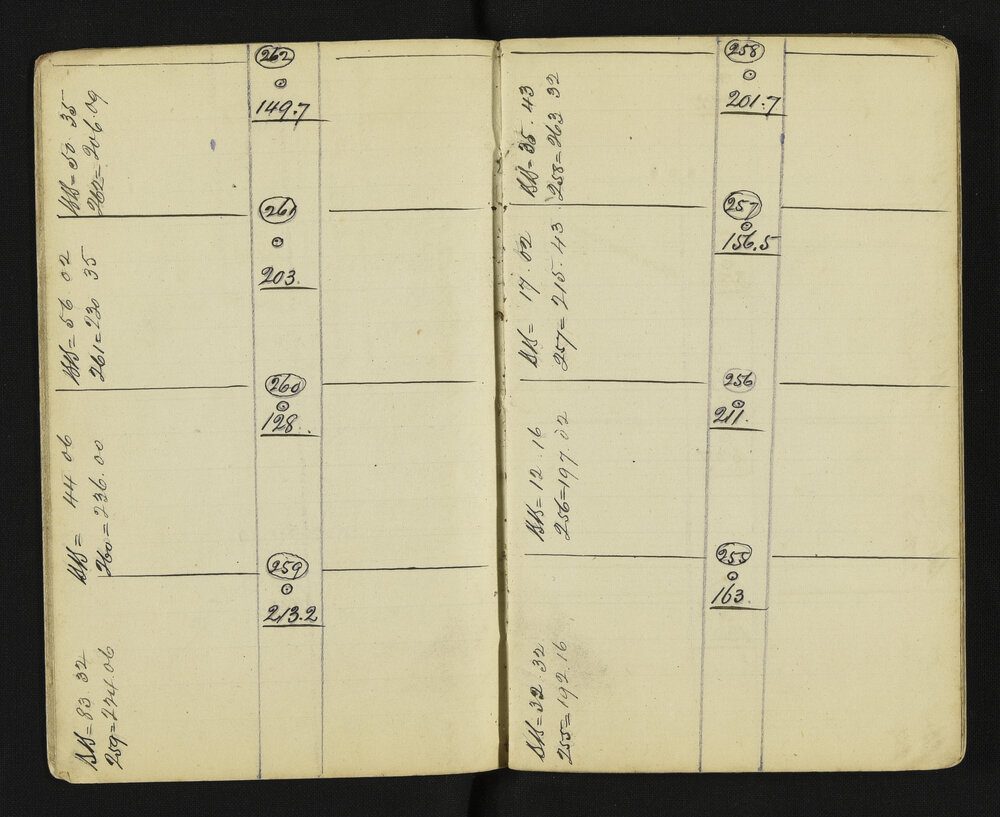 262
149.7
BB = 50 35
262 = 206.09
261
203.
BB = 56 02
261 = 230 35
260
128.
BB = 44 06
260 = 236.00
259
213.2
BB = 83.32
259 = 224.06
258
201.7
BB = 35.43
258 = 263 32
257
156.5
BB = 17.02
257 = 215.43
256
211.
BB = 12.16
256 = 197.02
255
163.
BB = 32.32
255 = 192.16